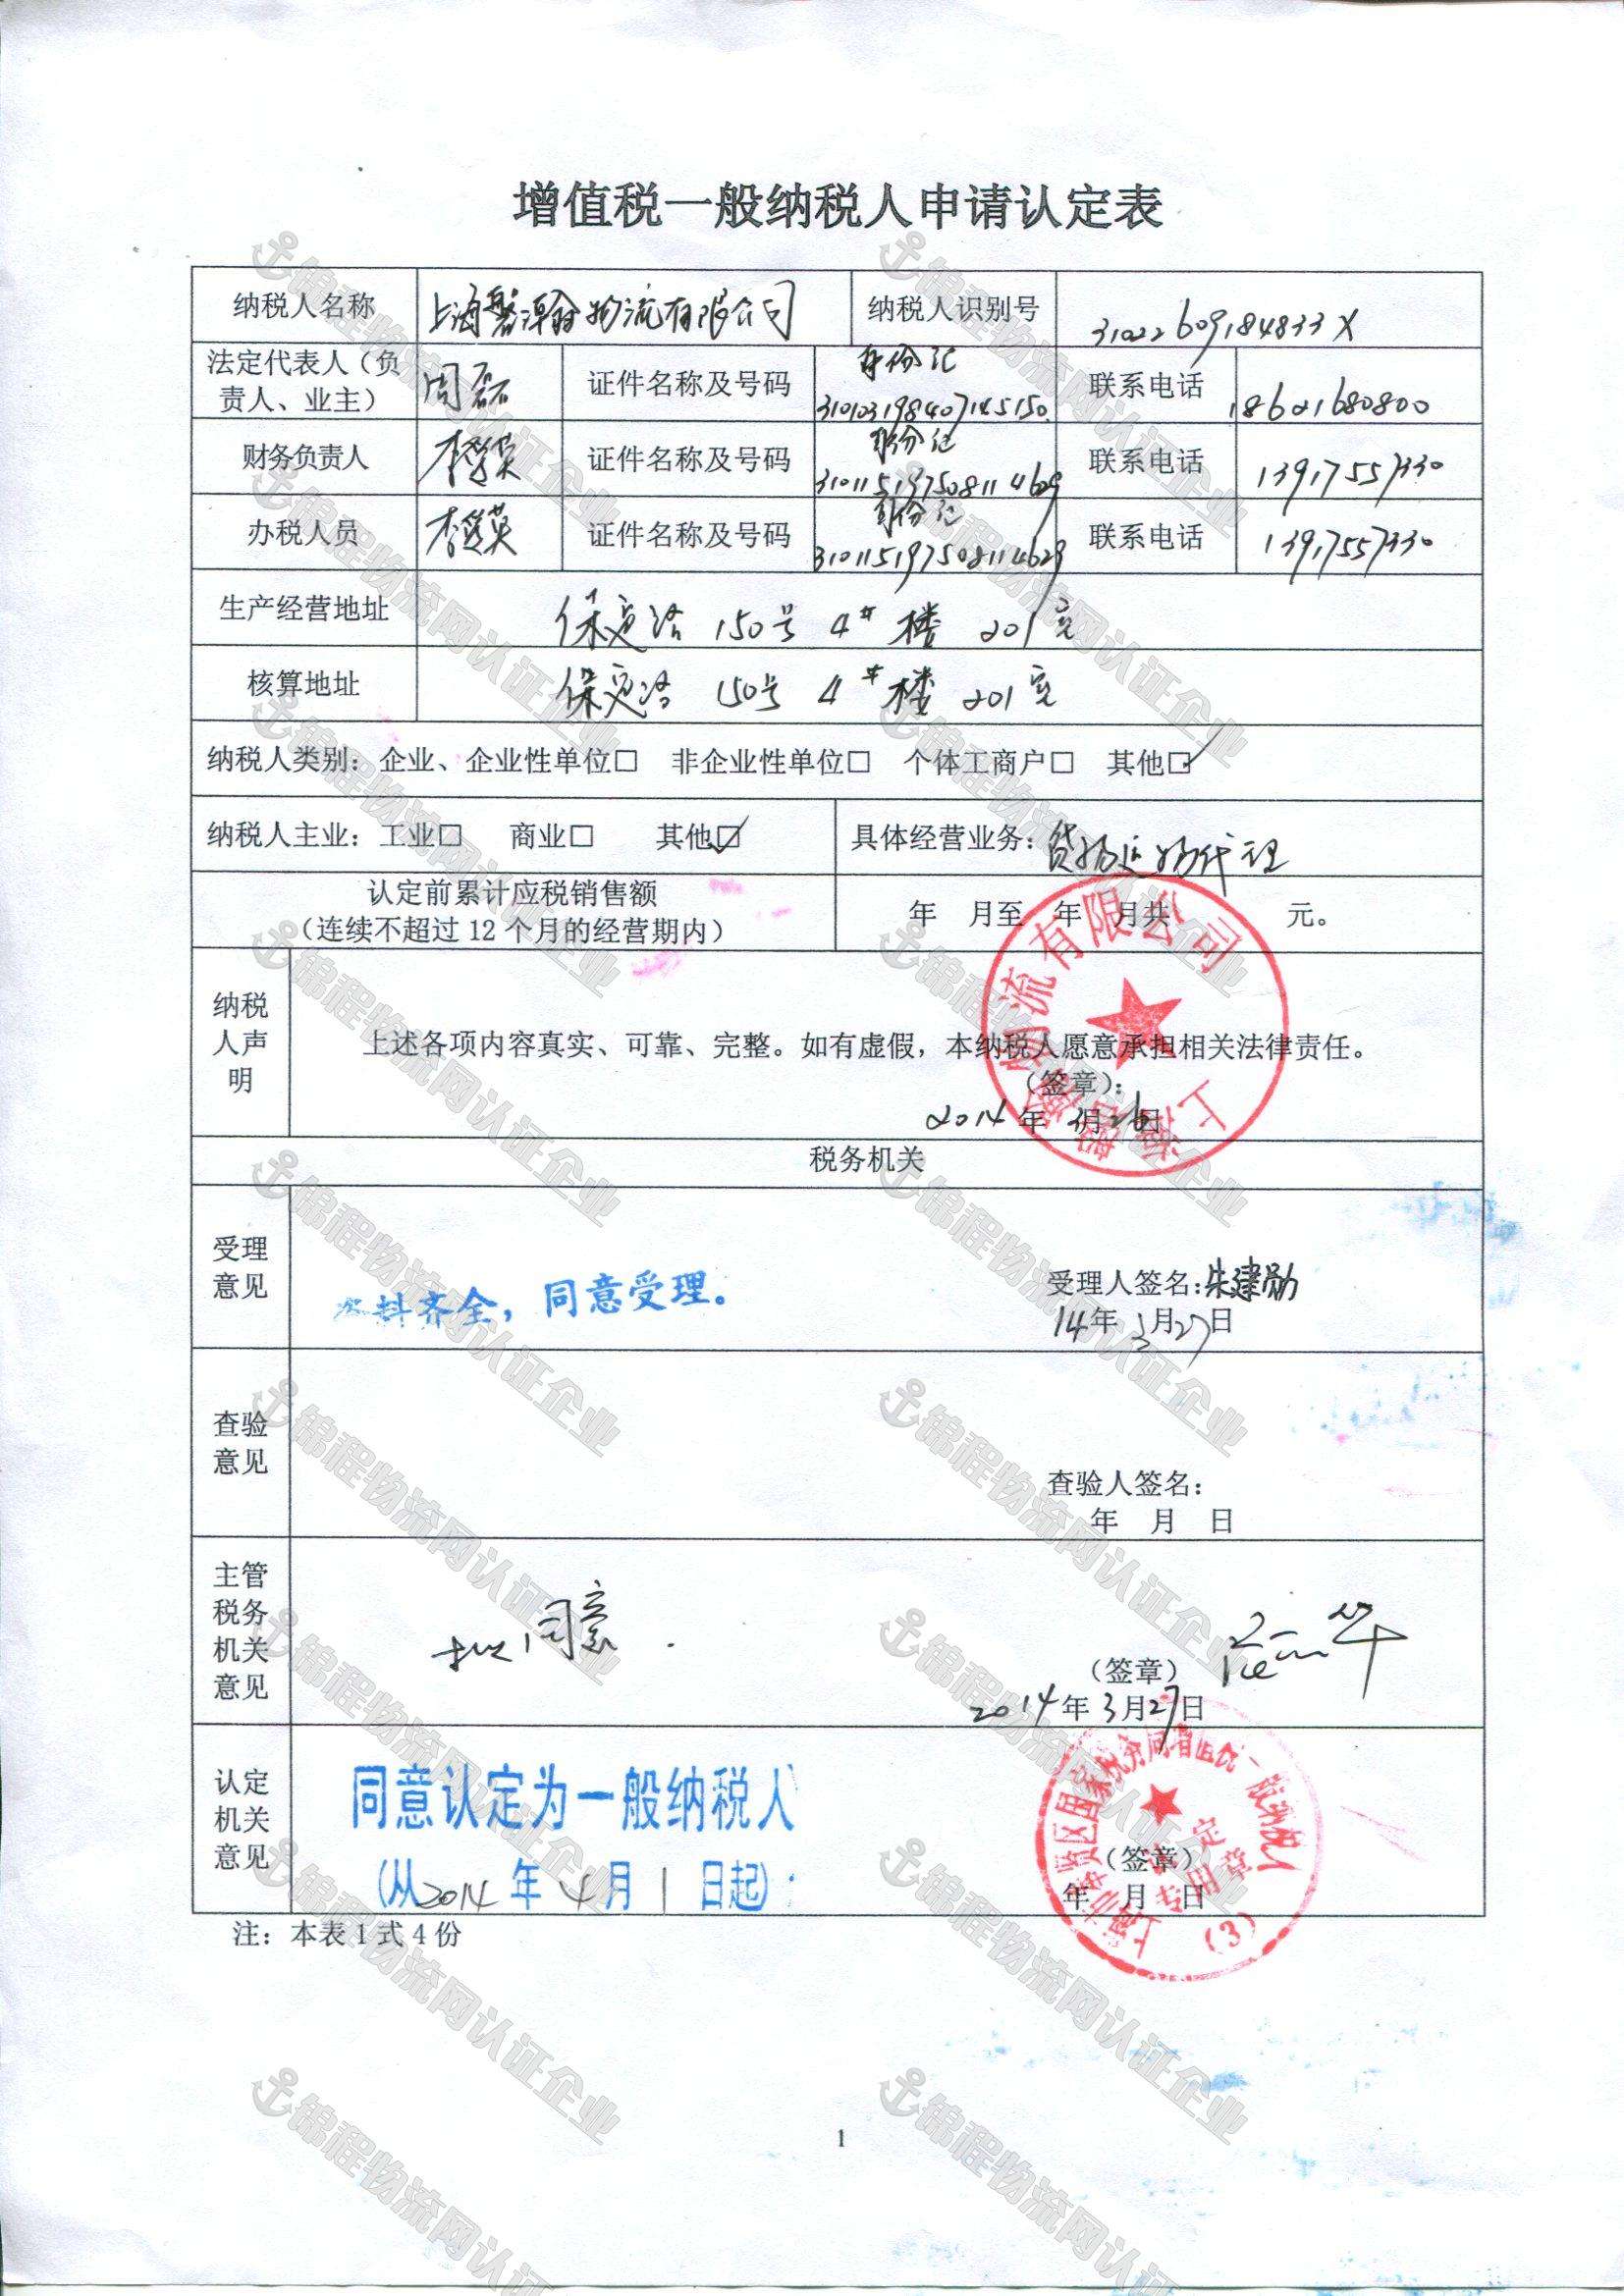 增值税一般纳税人申请认定表
纳税人名称 上海馨瀚物流有限公司 纳税人识别号 31022609184833X
法定代表人（负责人、业主） 周磊 证件名称及号码 身份证 310103198407145150 联系电话 18621680800
财务负责人 李 英 证件名称及号码 身份证 310115197508114629 联系电话 13917557330
办税人员 李 英 证件名称及号码 身份证 310115197508114629 联系电话 13917557330
生产经营地址 保定路 150号 4# 楼 201室
核算地址 保定路 150号 4# 楼 201室
纳税人类别：企业、企业性单位□ 非企业性单位□ 个体工商户□ 其他☑
纳税人主业：工业□ 商业□ 其他☑ 具体经营业务：货物运输代理
认定前累计应税销售额
（连续不超过12个月的经营期内） 年 月至 年 月共 元。
纳税人声明
上述各项内容真实、可靠、完整。如有虚假，本纳税人愿意承担相关法律责任。
（签章）：
2014年 3月26日
上海馨瀚物流有限公司
税务机关
受理意见
料齐全，同意受理。
受理人签名：朱建勋
14年 3月27日
查验意见
查验人签名：
年 月 日
主管税务机关意见
拟同意.
（签章）
2014年3月27日
认定机关意见
同意认定为一般纳税人
（从2014年4月1日起）
（签章）
年 月 日
上海市奉贤区国家税务局增值税一般纳税人
认定
专用章
（3）
注：本表1式4份
1
锦程物流网认证企业